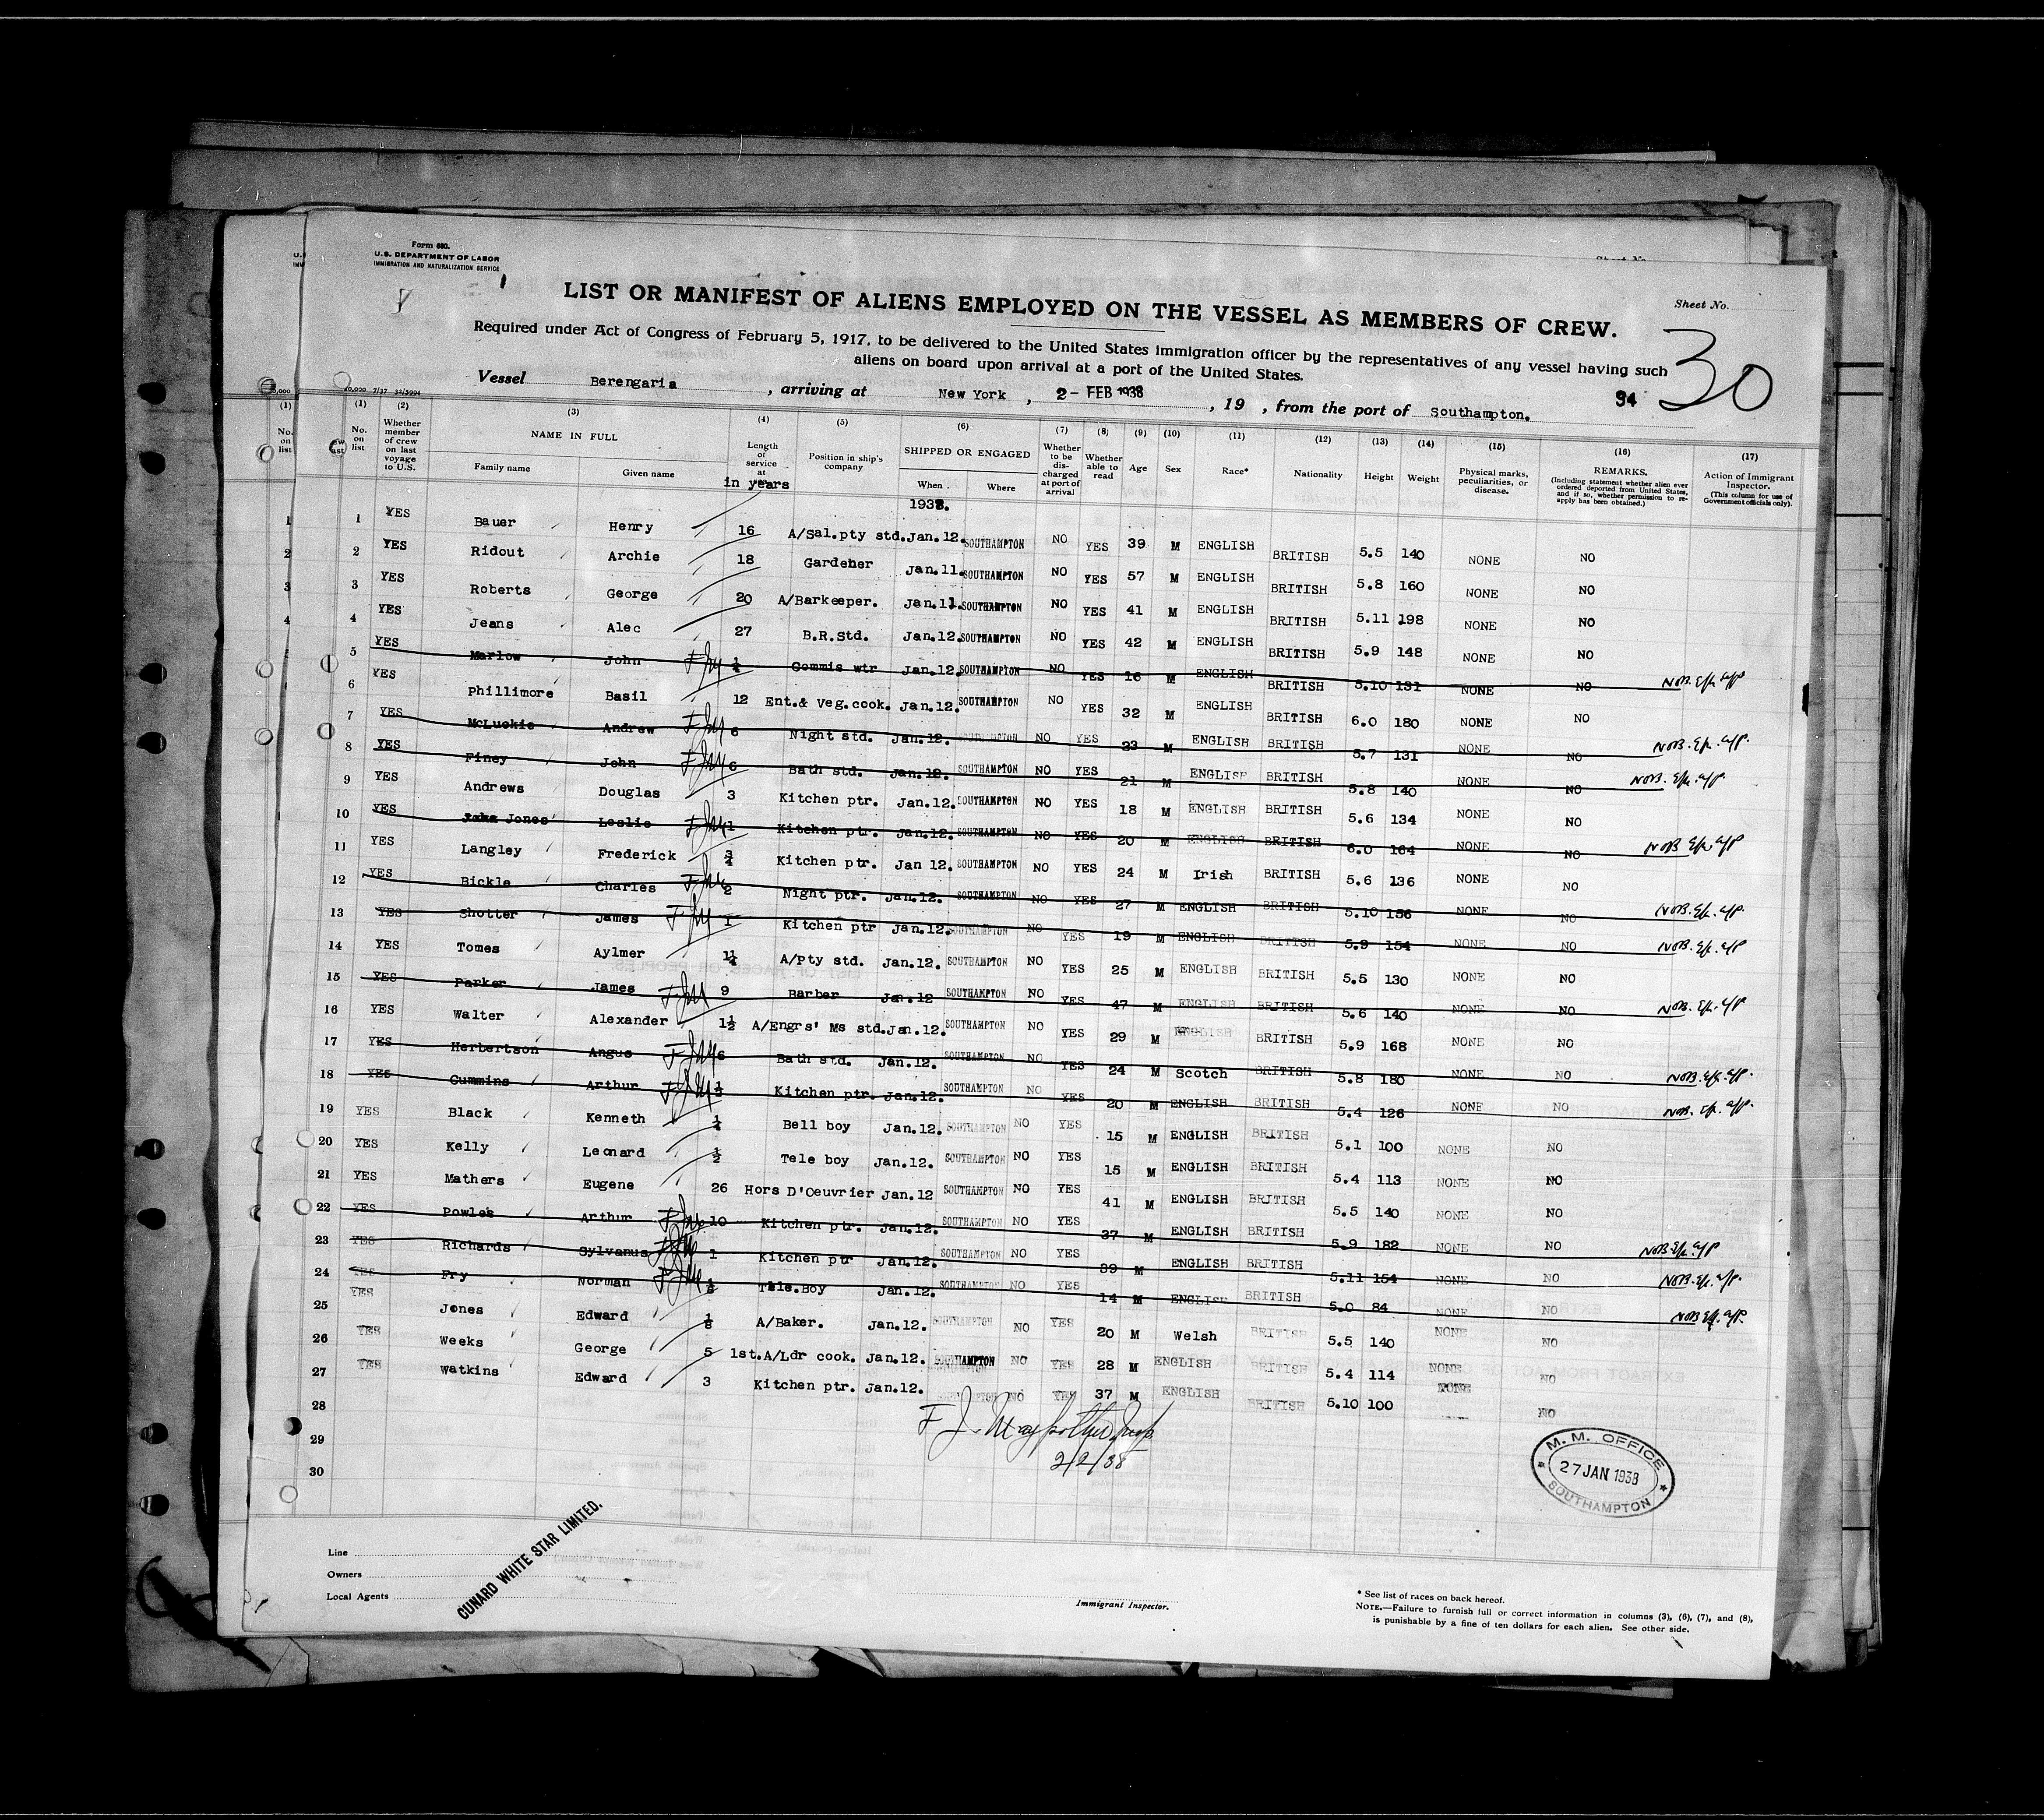 Form 680.
U.S. DEPARTMENT OF LABOR
IMMIGRATION AND NATURALIZATION SERVICE
Sheet No.
LIST OR MANIFEST OF ALIENS EMPLOYED ON THE VESSEL AS MEMBERS OF CREW.
Required under Act of Congress of February 5, 1917, to be delivered to the United States immigration officer by the representatives of any vessel having such
aliens on board upon arrival at a port of the United States.
30
Vessel Berengaria, arriving at New York, 2 - FEB 1938, 19 , from the port of Southampton. 94
(1) (2) (3) (4) (5) (6) (7) (8) (9) (10) (11) (12) (13) (14) (15) (16) (17)
No. on list
Whether member of crew on last voyage to U.S.
NAME IN FULL
Family name
Given name
Length of service at
in years
Position in ship's company
SHIPPED OR ENGAGED
When
Where
Whether to be discharged at port of arrival
Whether able to read
Age
Sex
Race*
Nationality
Height
Weight
Physical marks, peculiarities, or disease.
REMARKS.
(Including statement whether alien ever ordered deported from United States, and if so, whether permission to re-apply has been obtained.)
Action of Immigrant Inspector.
(This column for use of Government officials only).
1938.
1 YES Bauer Henry 16 A/Sal.pty std. Jan.12. SOUTHAMPTON NO YES 39 M ENGLISH BRITISH 5.5 140 NONE NO
2 YES Ridout Archie 18 Gardener Jan.11. SOUTHAMPTON NO YES 57 M ENGLISH BRITISH 5.8 160 NONE NO
3 YES Roberts George 20 A/Barkeeper. Jan.11. SOUTHAMPTON NO YES 41 M ENGLISH BRITISH 5.11 198 NONE NO
4 YES Jeans Alec 27 B.R.Std. Jan.12. SOUTHAMPTON NO YES 42 M ENGLISH BRITISH 5.9 148 NONE NO
5 YES Marlow John Commis wtr Jan.12. SOUTHAMPTON NO YES 16 M ENGLISH BRITISH 5.10 131 NONE NO
6 YES Phillimore Basil 12 Ent.& Veg.cook. Jan.12. SOUTHAMPTON NO YES 32 M ENGLISH BRITISH 6.0 180 NONE NO
7 YES McLuckie Andrew 6 Night std. Jan.12. SOUTHAMPTON NO YES 23 M ENGLISH BRITISH 5.7 131 NONE NO
8 YES Finey John 6 Bath std. Jan.12. SOUTHAMPTON NO YES 21 M ENGLISH BRITISH 5.8 140 NONE NO
9 YES Andrews Douglas 3 Kitchen ptr. Jan.12. SOUTHAMPTON NO YES 18 M ENGLISH BRITISH 5.6 134 NONE NO
10 YES Jones Leslie 1 Kitchen ptr. Jan.12. SOUTHAMPTON NO YES 20 M ENGLISH BRITISH 6.0 164 NONE NO
11 YES Langley Frederick 3/4 Kitchen ptr. Jan 12. SOUTHAMPTON NO YES 24 M Irish BRITISH 5.6 136 NONE NO
12 YES Bickle Charles 2 Night ptr. Jan.12. SOUTHAMPTON NO YES 27 M ENGLISH BRITISH 5.10 156 NONE NO
13 YES Shotter James 1 Kitchen ptr Jan.12. SOUTHAMPTON NO YES 19 M ENGLISH BRITISH 5.9 154 NONE NO
14 YES Tomes Aylmer 1¼ A/Pty std. Jan.12. SOUTHAMPTON NO YES 25 M ENGLISH BRITISH 5.5 130 NONE NO
15 YES Parker James 9 Barber Jan.12 SOUTHAMPTON NO YES 47 M ENGLISH BRITISH 5.6 140 NONE NO
16 YES Walter Alexander 1½ A/Engrs' Ms std. Jan.12. SOUTHAMPTON NO YES 29 M ENGLISH BRITISH 5.9 168 NONE NO
17 YES Herbertson Angus 6 Bath std. Jan.12. SOUTHAMPTON NO YES 24 M Scotch BRITISH 5.8 180 NONE NO
18 YES Cummins Arthur Kitchen ptr. Jan.12. SOUTHAMPTON NO YES 20 M ENGLISH BRITISH 5.4 126 NONE NO
19 YES Black Kenneth ¼ Bell boy Jan.12. SOUTHAMPTON NO YES 15 M ENGLISH BRITISH 5.1 100 NONE NO
20 YES Kelly Leonard ½ Tele boy Jan.12. SOUTHAMPTON NO YES 15 M ENGLISH BRITISH 5.4 113 NONE NO
21 YES Mathers Eugene 26 Hors D'Oeuvrier Jan.12 SOUTHAMPTON NO YES 41 M ENGLISH BRITISH 5.5 140 NONE NO
22 YES Powles Arthur 10 Kitchen ptr. Jan.12. SOUTHAMPTON NO YES 37 M ENGLISH BRITISH 5.9 182 NONE NO
23 YES Richards Sylvanus 1 Kitchen ptr Jan.12. SOUTHAMPTON NO YES 39 M ENGLISH BRITISH 5.11 154 NONE NO
24 YES Fry Norman Tele.Boy Jan.12. SOUTHAMPTON NO YES 14 M ENGLISH BRITISH 5.0 84 NONE NO
25 YES Jones Edward 1/8 A/Baker. Jan.12. SOUTHAMPTON NO YES 20 M Welsh BRITISH 5.5 140 NONE NO
26 YES Weeks George 5 1st.A/Ldr cook. Jan.12. SOUTHAMPTON NO YES 28 M ENGLISH BRITISH 5.4 114 NONE NO
27 YES Watkins Edward 3 Kitchen ptr. Jan.12. SOUTHAMPTON NO YES 37 M ENGLISH BRITISH 5.10 100 NONE NO
28
29
30
2/2/38
M. M. OFFICE
27 JAN 1938
SOUTHAMPTON
Line
Owners
Local Agents
CUNARD WHITE STAR LIMITED.
Immigrant Inspector.
* See list of races on back hereof.
NOTE.—Failure to furnish full or correct information in columns (3), (6), (7), and (8),
is punishable by a fine of ten dollars for each alien. See other side.